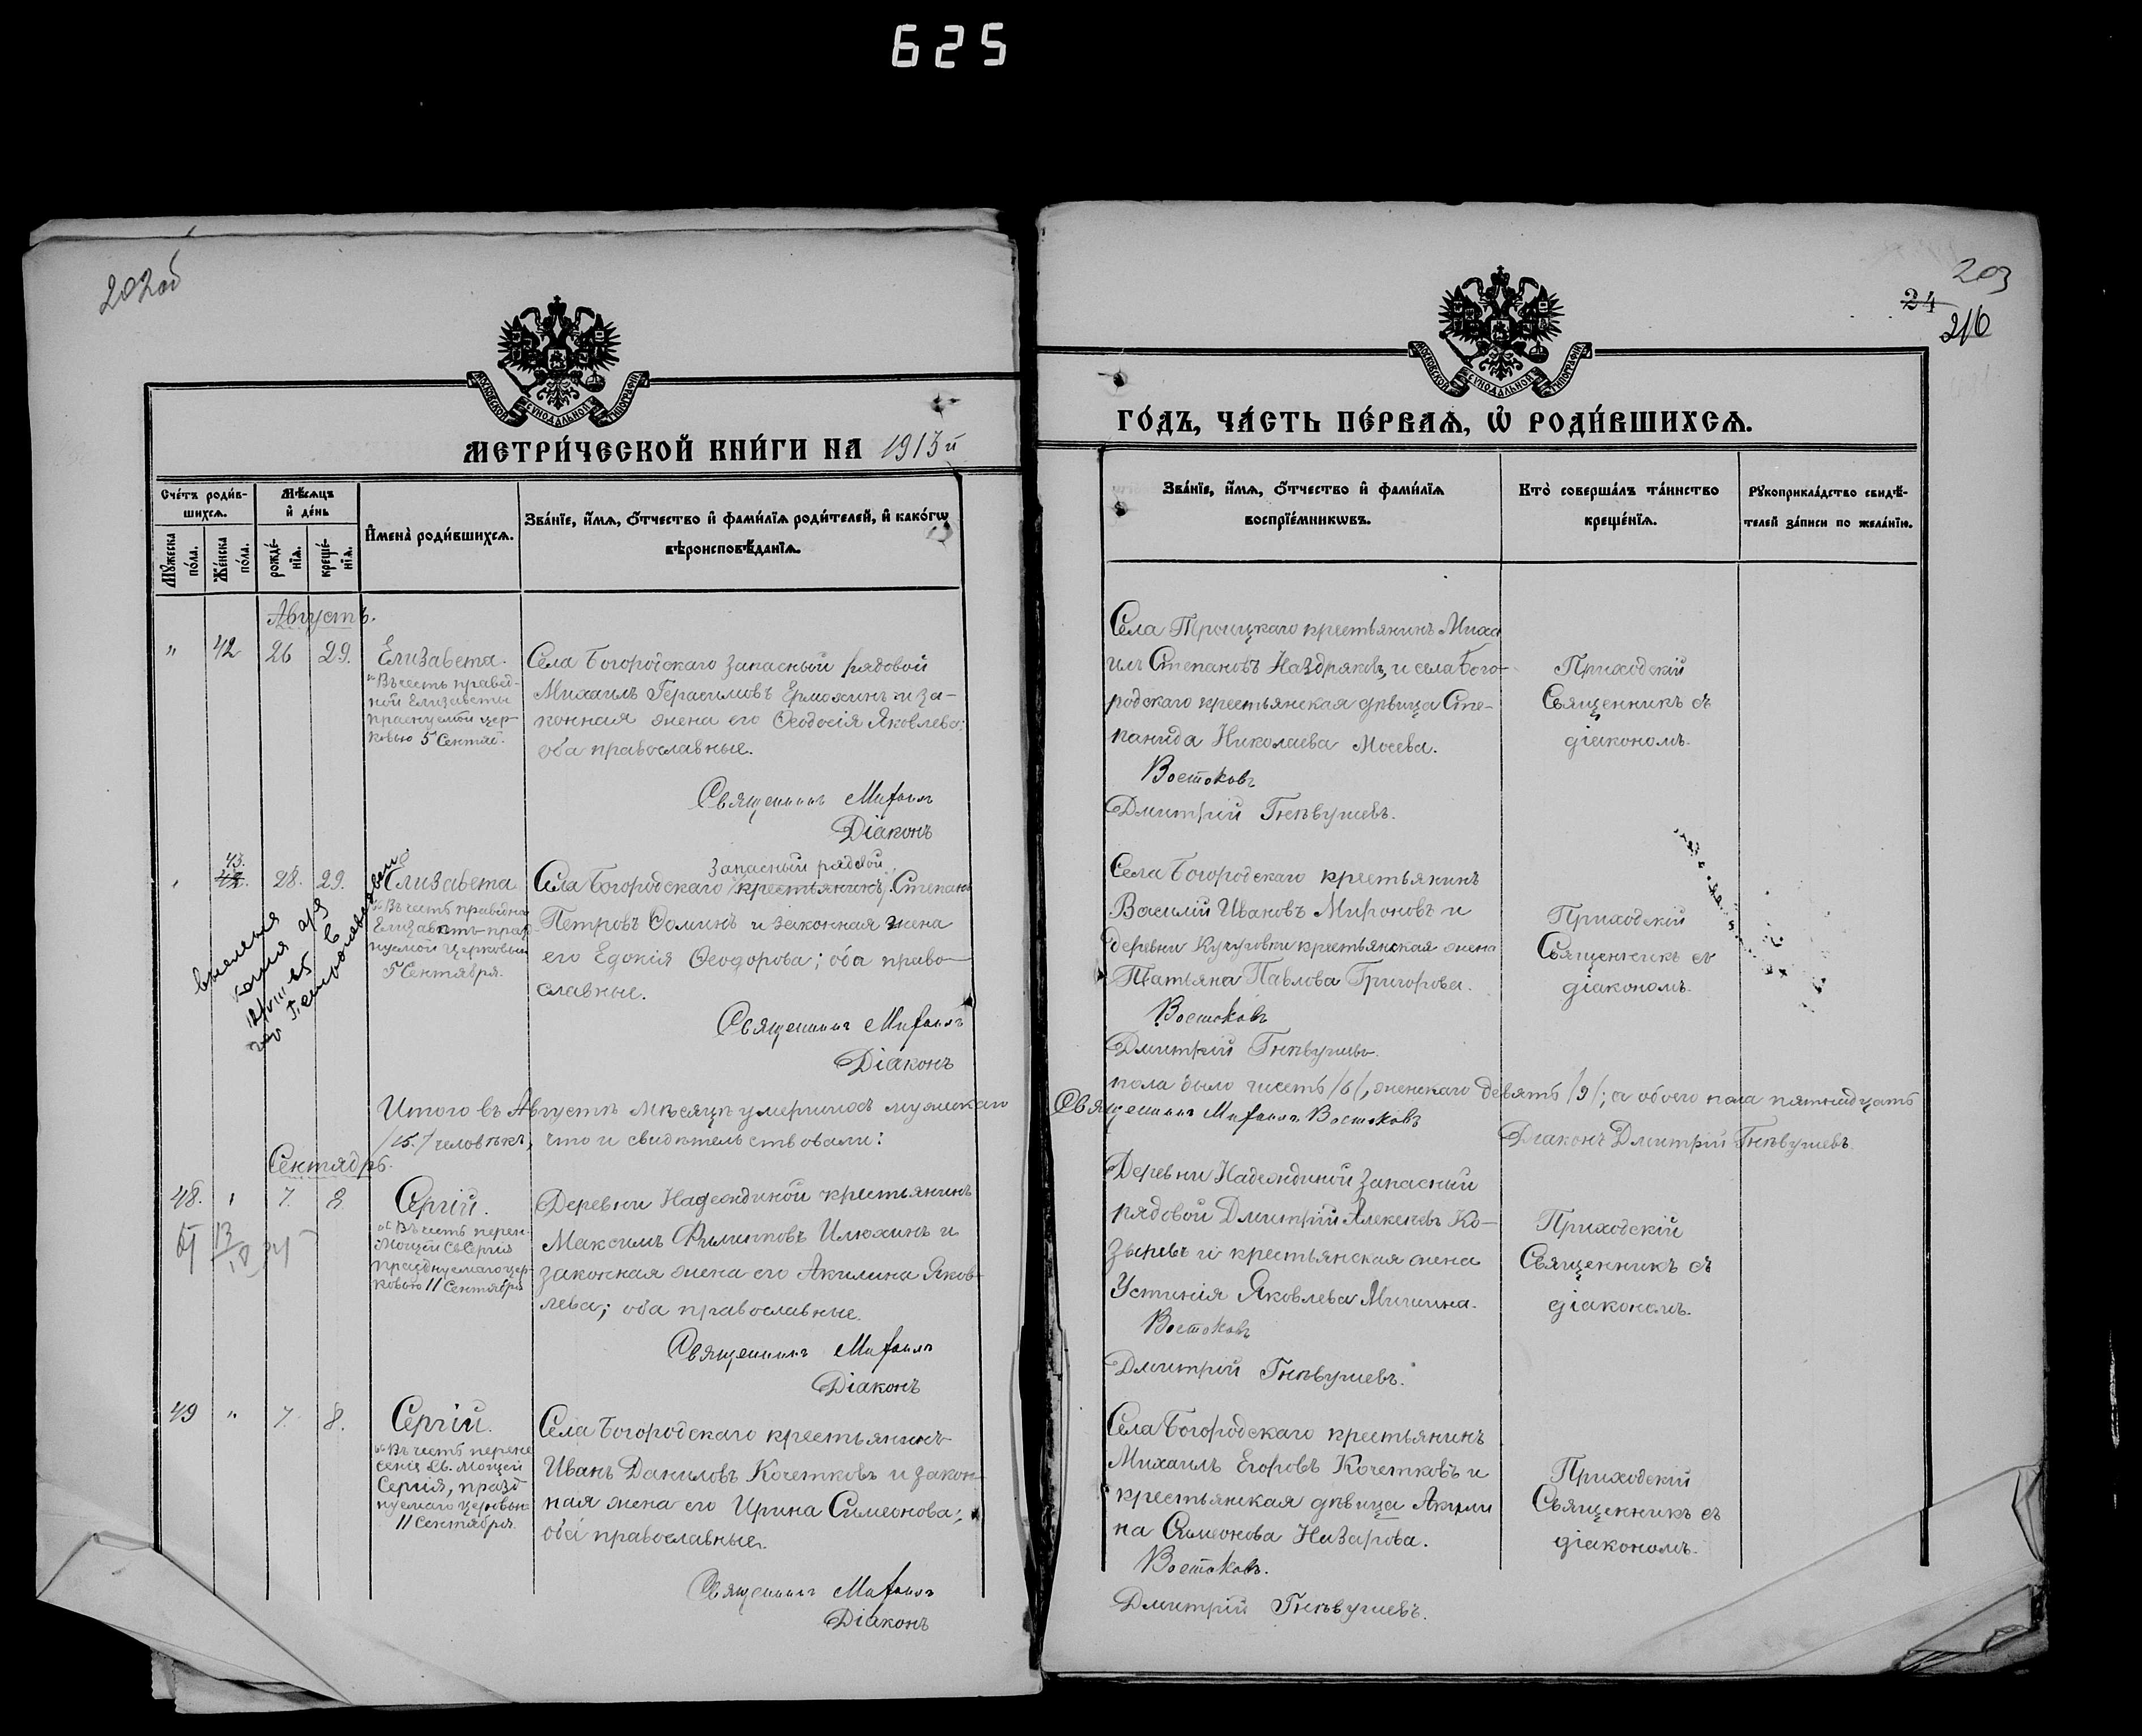 625
202об
МОСКОВСКОЙ СѴНОДАЛЬНОЙ ТИПОГРАФІИ
МЕТРИ́ЧЕСКОЙ КНИ́ГИ НА 1913й
Сче́тъ роди́в-
шихсѧ.
Мѣ́сѧцъ
и҆ де́нь
И҆мена̀ роди́вшихсѧ.
Зва́нїе, и҆́мѧ, ѻ҆́тчество и҆ фами́лїѧ роди́телей, и҆ како́гѡ
вѣроисповѣ́данїѧ.
Мꙋ́жеска
по́ла.
Же́нска
по́ла.
рожде́-
нїѧ.
креще́-
нїѧ.
Августъ.
" 42 26 29. Елизавета.
"Въ честь правед-
ной Елизаветы
празнуемой цер-
ковью 5 Сентяб.
Села Богородскаго запасный рядовой
Михаилъ Герасимовъ Ермохинъ и за-
конная жена его Ѳеодосія Яковлева;
оба православные.
Священникъ Михаилъ
Діаконъ
43.
42. 28. 29. Елизавета
"Въ честь праведной
Елизаветъ праз-
нуемой церковью
5 Сентября.
Запасный рядовой
Села Богородскаго /крестьянинъ/ Степанъ
Петровъ Ѳоминъ и законная жена
его Едокія Ѳеодорова; оба право-
славные.
Священникъ Михаилъ
Діаконъ
Итого въ Августѣ мѣсяцѣ умершихъ мужскаго
/15./ человѣкъ, что и свидѣтельствовали:
Сентябрь.
48. " 7. 8. Сергій.
"Въ честь перен.
Мощей Св Сергія
празднуемаго цер-
ковью 11 Сентября
Деревни Надеждиной крестьянинъ
Максимъ Филиповъ Илюхинъ и
законная жена его Акилина Яков-
лева; оба православные.
Священникъ Михаилъ
Діаконъ
49 " 7. 8. Сергій.
"Въ честь перене
сенія Св. Мощей
Сергія, празд
нуемаго церковью
11 Сентября.
Села Богородскаго крестьянинъ
Иванъ Даниловъ Кочетковъ и закон-
ная жена его Ирина Симеонова;
оба православные.
Священникъ Михаилъ
Діаконъ
203
24
216
МОСКОВСКОЙ СѴНОДАЛЬНОЙ ТИПОГРАФІИ
ГО́ДЪ, ЧА́СТЬ ПЕ́РВАѦ, Ѡ҆ РОДИ́ВШИХСѦ.
Зва́нїе, и҆́мѧ, ѻ҆́тчество и҆ фами́лїѧ
воспрїе́мникѡвъ.
Кто̀ соверша́лъ та́инство
креще́нїѧ.
Рꙋкоприкла́дство свидѣ́-
телей за́писи по жела́нїю.
Села Троицкаго крестьянинъ Миха
илъ Степановъ Наздряковъ, и села Бого-
родскаго крестьянская дѣвица Сте-
панида Николаева Мосева.
Востоковъ
Дмитрій Гнѣвушевъ.
Приходскій
Священникъ съ
діакономъ.
Села Богородскаго крестьянинъ
Василій Ивановъ Мироновъ и
деревни Кучуговки крестьянская жена
Татьяна Павлова Григорова.
Востоковъ
Дмитрій Гнѣвушевъ.
Приходскій
Священникъ съ
діакономъ.
пола было шесть /6/, женскаго девять /9/; а обоего пола пятнадцать
Священникъ Михаилъ Востоковъ
Діаконъ Дмитрій Гнѣвушевъ.
Деревни Надеждиной запасный
рядовой Дмитрій Алексѣевъ Ко-
зыревъ и крестьянская жена
Устинія Яковлева Мишина.
Востоковъ
Дмитрій Гнѣвушевъ.
Приходскій
Священникъ съ
діакономъ.
Села Богородскаго крестьянинъ
Михаилъ Егоровъ Кочетковъ и
крестьянская дѣвица Акили
на Симеонова Назарова.
Востоковъ.
Дмитрій Гнѣвушевъ.
Приходскій
Священникъ съ
діакономъ.